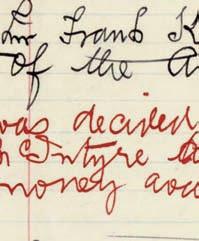 Frank K
of the A
was decided
Intyre
money